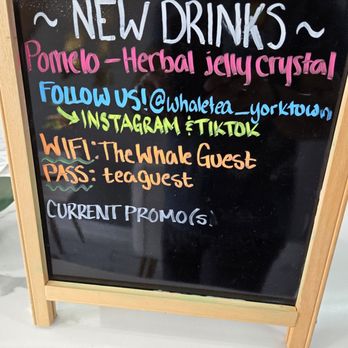 ~ NEW DRINKS ~
Pomelo - Herbal jelly crystal
FOLLOW US! @whaletea_yorktown
INSTAGRAM & TIKTOK
WIFI: The Whale Guest
PASS: teaguest
CURRENT PROMO(s)